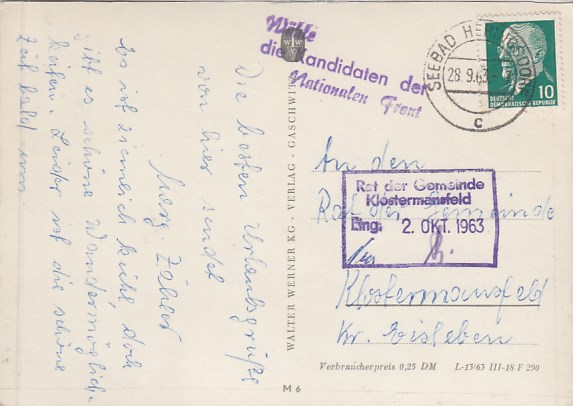 Wähle
die Kandidaten der
Nationalen Front
WWV
SEEBAD HERINGSDORF
28.9.63
c
DEUTSCHE
DEMOKRATISCHE REPUBLIK
10
An den
Rat der Gemeinde
Klostermansfeld
Kr. Eisleben
Rat der Gemeinde
Klostermansfeld
Eing. 2. OKT. 1963
Die besten Urlaubsgrüße
von hier sendet
Es ist ziemlich kühl, doch
gibt es schöne Wandermöglich-
keiten. Leider ist die schöne
Zeit bald um
WALTER WERNER KG · VERLAG · GASCHWITZ
Verbraucherpreis 0,25 DM
L-13/63 III-18 F 290
M 6